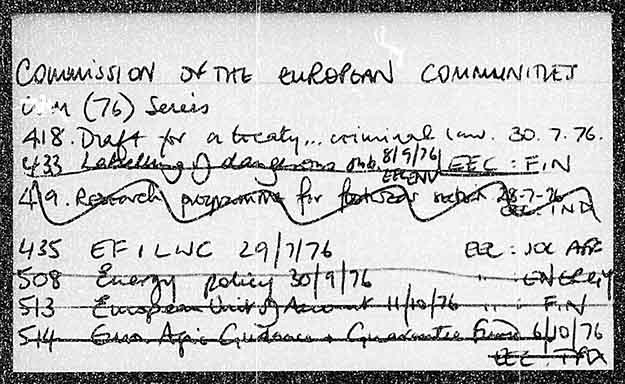 COMMISSION OF THE EUROPEAN COMMUNITIES
(76) Series
418. Draft for a treaty... criminal law. 30.7.76.
433 Labelling of dangerous 8/9/76 EEC : FIN
EEC ENV
419. Research programme for sector 28-7-76
EEC : IND
435 EFILWC 29/7/76 EEC : SOC AFF
508 Energy policy 30/9/76 " : ENERGY
513 European Unit of Account 11/10/76 " : FIN
514 Euro Agric Guidance + Guarantee Fund 6/10/76
EEC :